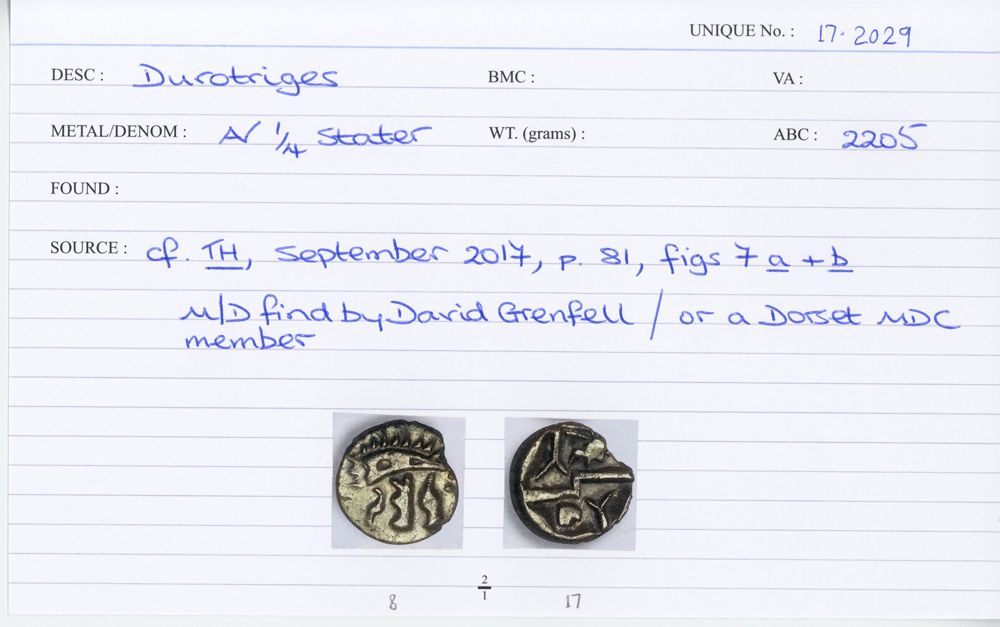 UNIQUE No. : 17.2029
DESC : Durotriges BMC : VA :
METAL/DENOM : A/ 1/4 Stater WT. (grams) : ABC : 2205
FOUND :
SOURCE : cf. TH, September 2017, p. 81, figs 7 a + b
M/D find by David Grenfell / or a Dorset MDC
member
2/1
8 17